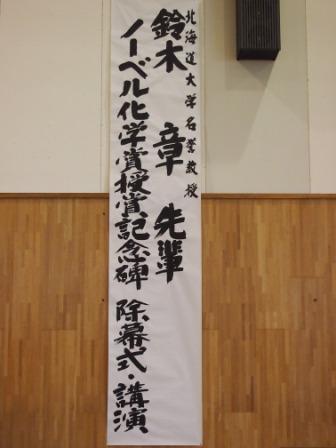 北海道大学名誉教授
鈴木 章 先輩
ノーベル化学賞授賞記念碑 除幕式・講演